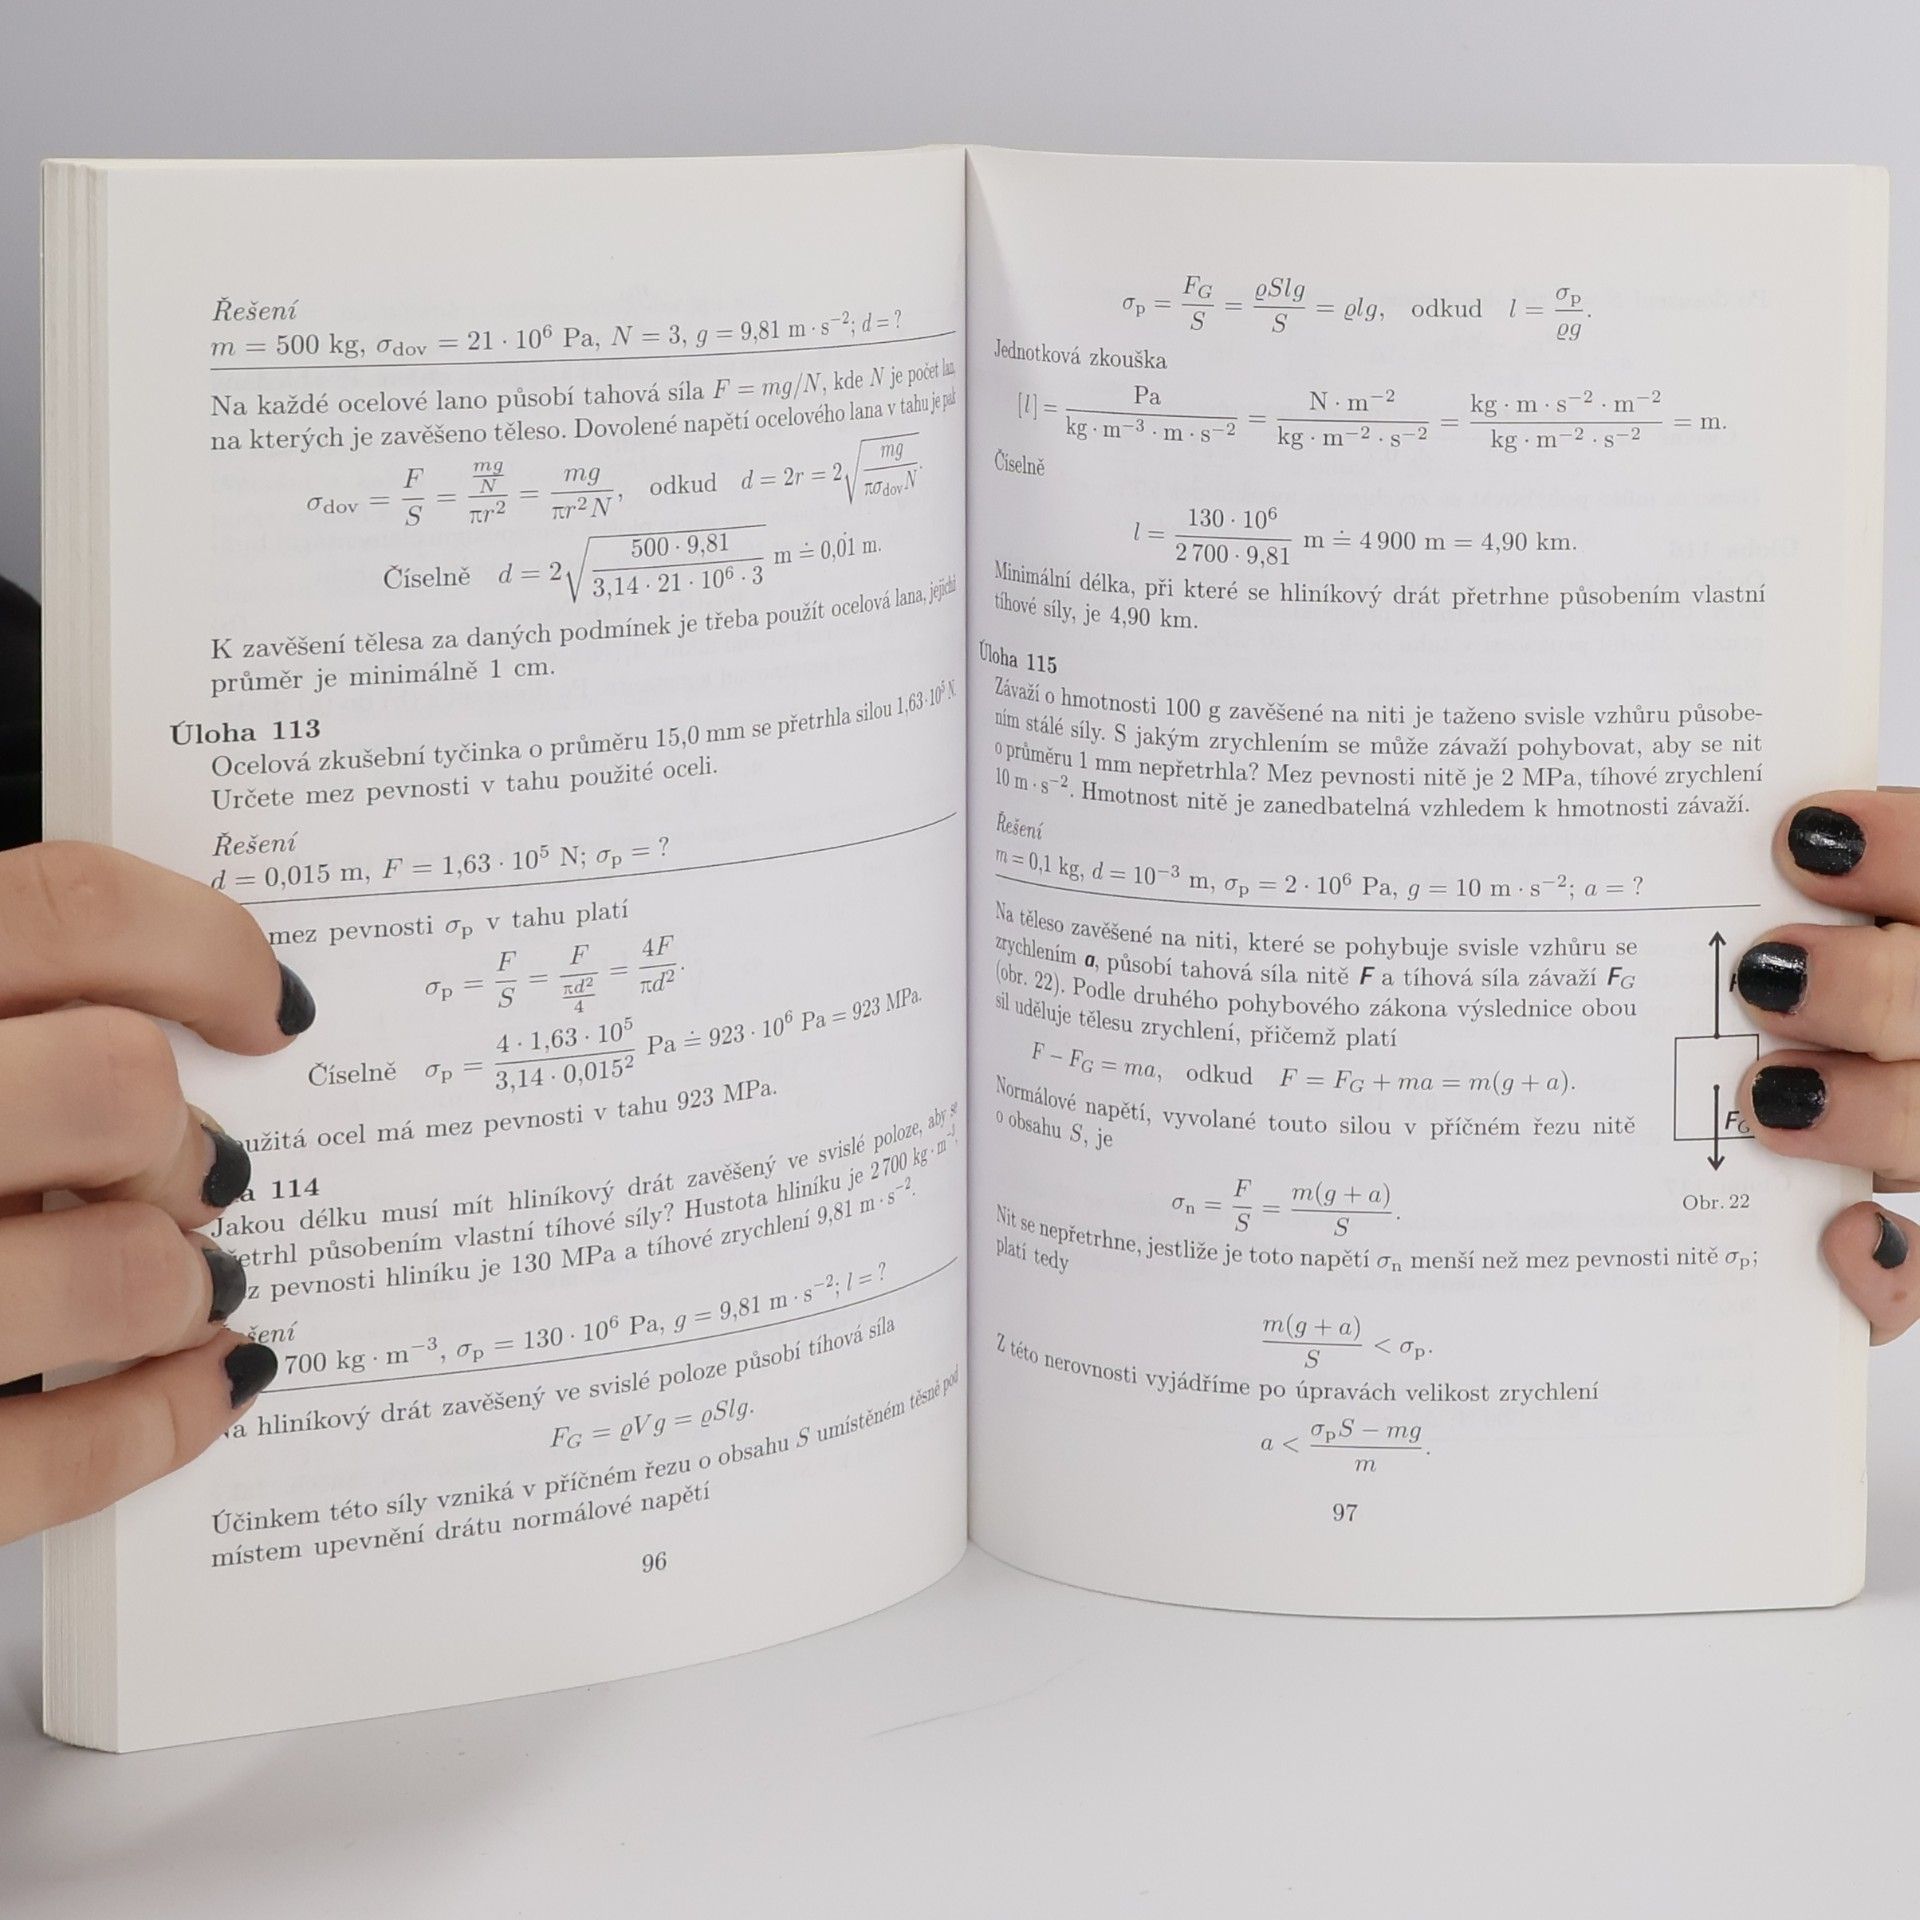 Řešení
m = 500 kg, σdov = 21 · 10⁶ Pa, N = 3, g = 9,81 m · s⁻²; d = ?
Na každé ocelové lano působí tahová síla F = mg/N, kde N je počet lan,
na kterých je zavěšeno těleso. Dovolené napětí ocelového lana v tahu je pak
σdov = F/S = (mg/N)/(πr²) = mg/(πr²N), odkud d = 2r = 2√(mg/(πσdovN)).
Číselně d = 2√(500 · 9,81/(3,14 · 21 · 10⁶ · 3)) m ≐ 0,01 m.
K zavěšení tělesa za daných podmínek je třeba použít ocelová lana, jejichž
průměr je minimálně 1 cm.
Úloha 113
Ocelová zkušební tyčinka o průměru 15,0 mm se přetrhla silou 1,63·10⁵ N.
Určete mez pevnosti v tahu použité oceli.
Řešení
d = 0,015 m, F = 1,63 · 10⁵ N; σp = ?
mez pevnosti σp v tahu platí
σp = F/S = F/(πd²/4) = 4F/(πd²).
Číselně σp = (4 · 1,63 · 10⁵)/(3,14 · 0,015²) Pa ≐ 923 · 10⁶ Pa = 923 MPa.
užitá ocel má mez pevnosti v tahu 923 MPa.
a 114
Jakou délku musí mít hliníkový drát zavěšený ve svislé poloze, aby se
etrhl působením vlastní tíhové síly? Hustota hliníku je 2 700 kg · m⁻³,
z pevnosti hliníku je 130 MPa a tíhové zrychlení 9,81 m · s⁻².
šení
700 kg · m⁻³, σp = 130 · 10⁶ Pa, g = 9,81 m · s⁻²; l = ?
a hliníkový drát zavěšený ve svislé poloze působí tíhová síla
FG = ϱVg = ϱSlg.
Účinkem této síly vzniká v příčném řezu o obsahu S umístěném těsně pod
místem upevnění drátu normálové napětí
96
σp = FG/S = ϱSlg/S = ϱlg, odkud l = σp/(ϱg).
Jednotková zkouška
[l] = Pa/(kg · m⁻³ · m · s⁻²) = (N · m⁻²)/(kg · m⁻² · s⁻²) = (kg · m · s⁻² · m⁻²)/(kg · m⁻² · s⁻²) = m.
Číselně
l = (130 · 10⁶)/(2 700 · 9,81) m ≐ 4 900 m = 4,90 km.
Minimální délka, při které se hliníkový drát přetrhne působením vlastní
tíhové síly, je 4,90 km.
Úloha 115
Závaží o hmotnosti 100 g zavěšené na niti je taženo svisle vzhůru působe-
ním stálé síly. S jakým zrychlením se může závaží pohybovat, aby se nit
o průměru 1 mm nepřetrhla? Mez pevnosti nitě je 2 MPa, tíhové zrychlení
10 m · s⁻². Hmotnost nitě je zanedbatelná vzhledem k hmotnosti závaží.
Řešení
m = 0,1 kg, d = 10⁻³ m, σp = 2 · 10⁶ Pa, g = 10 m · s⁻²; a = ?
Na těleso zavěšené na niti, které se pohybuje svisle vzhůru se
zrychlením a, působí tahová síla nitě F a tíhová síla závaží FG
(obr. 22). Podle druhého pohybového zákona výslednice obou
sil uděluje tělesu zrychlení, přičemž platí
F − FG = ma, odkud F = FG + ma = m(g + a).
Normálové napětí, vyvolané touto silou v příčném řezu nitě
o obsahu S, je
σn = F/S = m(g + a)/S.
FG
Obr. 22
Nit se nepřetrhne, jestliže je toto napětí σn menší než mez pevnosti nitě σp;
platí tedy
m(g + a)/S < σp.
Z této nerovnosti vyjádříme po úpravách velikost zrychlení
a < (σpS − mg)/m.
97